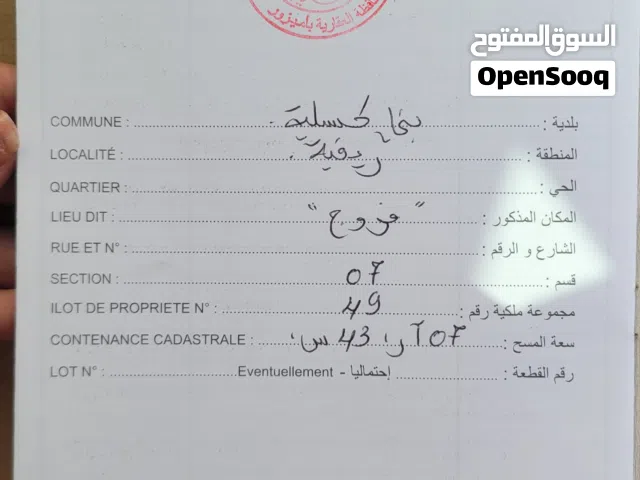 المحافظة العقارية بأميزور
السوق المفتوح
OpenSooq
COMMUNE : بني كسيلة بلدية :
LOCALITÉ : ريفية المنطقة :
QUARTIER : الحي :
LIEU DIT : المكان المذكور :
RUE ET N° : الشارع و الرقم :
SECTION : 07 قسم :
ILOT DE PROPRIETE N° : 49 مجموعة ملكية رقم :
CONTENANCE CADASTRALE : 07 آر، 43 س، سعة المسح :
LOT N° : Eventuellement - إحتماليا رقم القطعة :